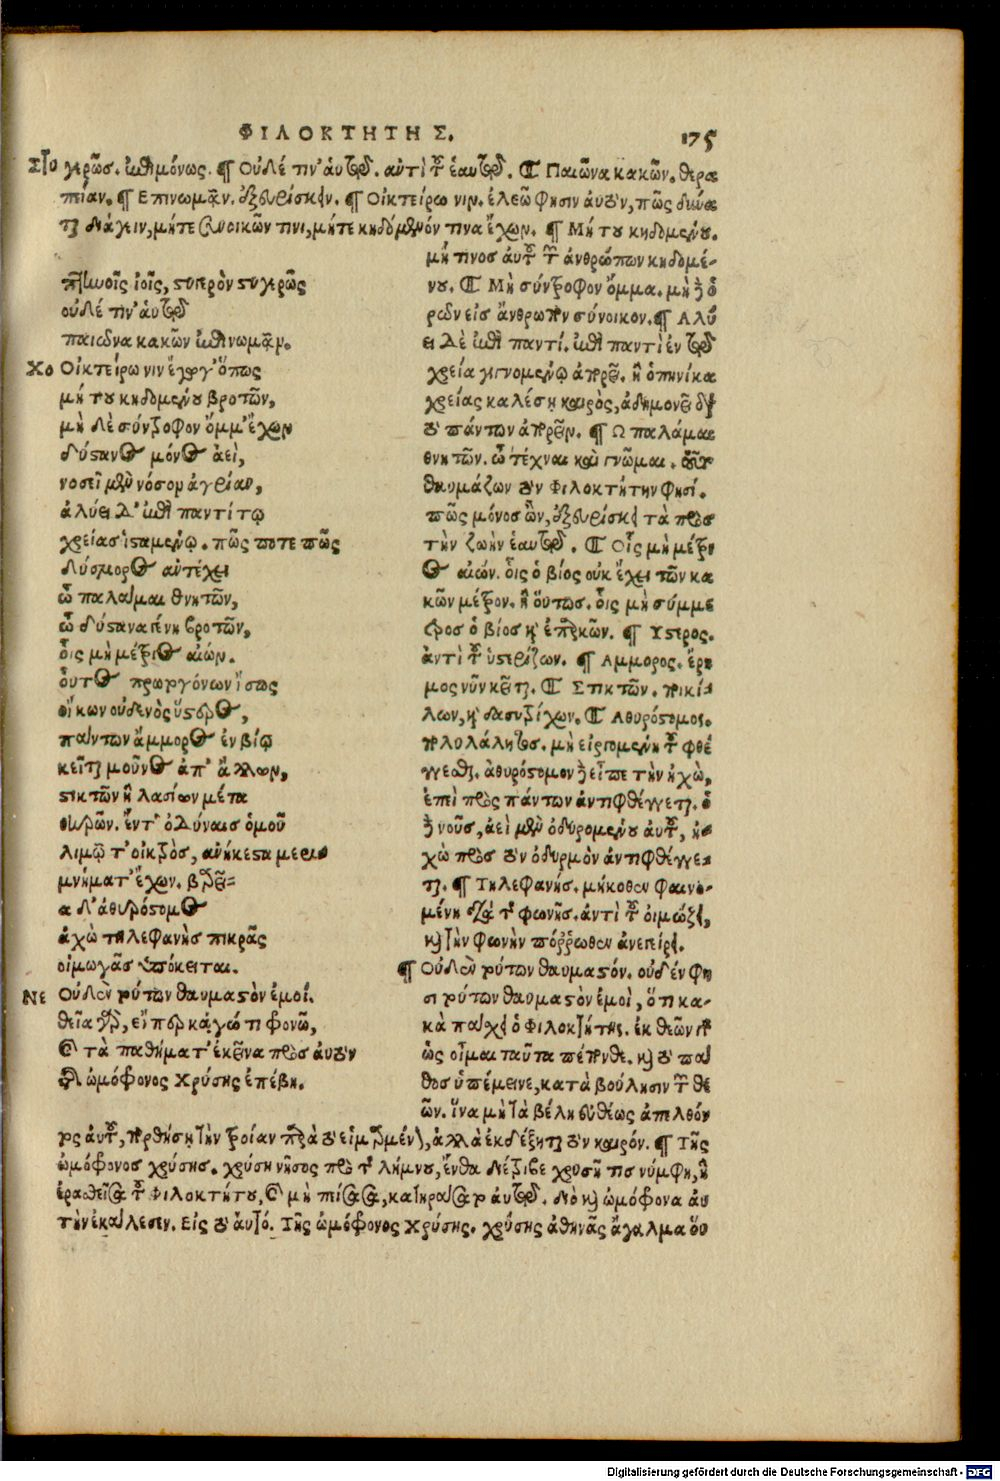 ΦΙΛΟΚΤΗΤΗΣ. 175
γερῶς. ἐπιμόνως. ¶ Οὐδέ τιν' αὑτῷ. ἀντὶ τοῦ ἑαυτῷ. ¶ Παιῶνα κακῶν. θερα
πείαν. ¶ Ἐπινωμᾶν. ἐξευρίσκειν. ¶ Οἰκτείρω νιν. ἐλεῶ φησιν αὐτόν, πῶς δύνα
ται διάγειν, μήτε συνοικῶν τινι, μήτε κηδόμενόν τινα ἔχων. ¶ Μή του κηδομένου.
πτηνοῖς ἰοῖς, στυγερὸν στυγερῶς
οὐδέ τιν' αὑτῷ
παιῶνα κακῶν ἐπινωμᾶν.
Χο Οἰκτείρω νιν ἔγωγ' ὅπως
μή του κηδομένου βροτῶν,
μηδὲ σύντροφον ὄμμ' ἔχων
δύστανος μόνος ἀεί,
νοσεῖ μὲν νόσον ἀγρίαν,
ἀλύει δ' ἐπὶ παντί τῳ
χρείας ἱσταμένῳ. πῶς ποτε πῶς
δύσμορος ἀντέχει
ὦ παλάμαι θνητῶν,
ὦ δύστανα γένη βροτῶν,
οἷς μὴ μέτριος αἰών.
οὗτος πρωτογόνων ἴσως
οἴκων οὐδενὸς ὕστερος,
πάντων ἄμμορος ἐν βίῳ
κεῖται μοῦνος ἀπ' ἄλλων,
στικτῶν ἢ λασίων μετὰ
θηρῶν. ἔν τ' ὀδύναις ὁμοῦ
λιμῷ τ' οἰκτρός, ἀνήκεστα μερι
μνήματ' ἔχων. βαρεῖ-
α δ' ἀθυρόστομος
ἀχὼ τηλεφανὴς πικρᾶς
οἰμωγᾶς ὑπόκειται.
Νε Οὐδὲν τούτων θαυμαστὸν ἐμοί.
θεῖα γὰρ, εἴπερ κἀγώ τι φρονῶ,
καὶ τὰ παθήματ' ἐκεῖνα πρὸς αὐτὸν
τῆς ὠμόφρονος Χρύσης ἐπέβη.
μή τινος αὐτοῦ τῶν ἀνθρώπων κηδομέ-
νου. ¶ Μὴ σύντροφον ὄμμα. μὴ δὲ ὁ
ρῶν εἰς ἄνθρωπον σύνοικον. ¶ Ἀλύ
ει δὲ ἐπὶ παντί. ἐπὶ παντὶ ἐν τῷ
χρείᾳ γινομένῳ ἀπορεῖ. ἢ ὁπηνίκα
χρείας καλέσῃ καιρὸς, ἀδημονεῖ διὰ
τὸ πάντων ἀπορεῖν. ¶ Ὦ παλάμαι
θνητῶν. ὦ τέχναι καὶ γνῶμαι. τοῦτο
θαυμάζων τὸν Φιλοκτήτην φησί.
πῶς μόνος ὢν, ἐξευρίσκει τὰ πρὸς
τὴν ζωὴν ἑαυτῷ. ¶ Οἷς μὴ μέτρι
ος αἰών. οἷς ὁ βίος οὐκ ἔχει τῶν κα
κῶν μέτρον. ἢ οὕτως. οἷς μὴ σύμμε
τρος ὁ βίος καὶ ἐπὶ κακῶν. ¶ Ὕστερος.
ἀντὶ τοῦ ὑστερίζων. ¶ Ἄμμορος. ἔρη
μος νῦν κεῖται. ¶ Στικτῶν. ποικί
λων, καὶ δασυτρίχων. ¶ Ἀθυρόστομος.
πολυλάλητος. μὴ εἰργομένη τοῦ φθέ
γγεσθαι. ἀθυρόστομον δὲ εἶπε τὴν ἠχὼ,
ἐπεὶ πρὸς πάντων ἀντιφθέγγεται. ὁ
δὲ νοῦς, ἀεὶ μὲν ὀδυρομένου αὐτοῦ, ἠ-
χὼ πρὸς τὸν ὀδυρμὸν ἀντιφθέγγε-
ται. ¶ Τηλεφανής. μήκοθεν φαινο-
μένη διὰ τῆς φωνῆς. ἀντὶ τοῦ οἰμώζει,
καὶ τὴν φωνὴν πόρρωθεν ἀνεπείρει.
¶ Οὐδὲν τούτων θαυμαστόν. οὐδέν φη
σι τούτων θαυμαστὸν ἐμοὶ, ὅτι κα-
κὰ πάσχει ὁ Φιλοκτήτης. ἐκ θεῶν γὰρ
ὡς οἶμαι ταῦτα πέπονθε. καὶ τὸ πά
θος ὑπέμεινε, κατὰ βούλησιν τῶν θε
ῶν. ἵνα μὴ τὰ βέλη εὐθέως ἀπελθόν
τος αὐτοῦ, πορθήσῃ τὴν Τροίαν παρὰ τὸ εἱμαρμένον, ἀλλὰ ἐκδέξηται τὸν καιρόν. ¶ Τῆς
ὠμόφρονος χρύσης. χρύση νῆσος πρὸ τῆς λήμνου, ἔνθα διέτριβε χρυσῆ τις νύμφη, ἣ
ἐρασθεῖσα τοῦ Φιλοκτήτου, καὶ μὴ πείσασα, κατηράσατο αὐτῷ. διὸ καὶ ὠμόφρονα αὐ
τὴν ἐκάλεσεν. Εἰς τὸ αὐτό. Τῆς ὠμόφρονος Χρύσης. χρύσης ἀθηνᾶς ἄγαλμα οὕ
Digitalisierung gefördert durch die Deutsche Forschungsgemeinschaft - DFG